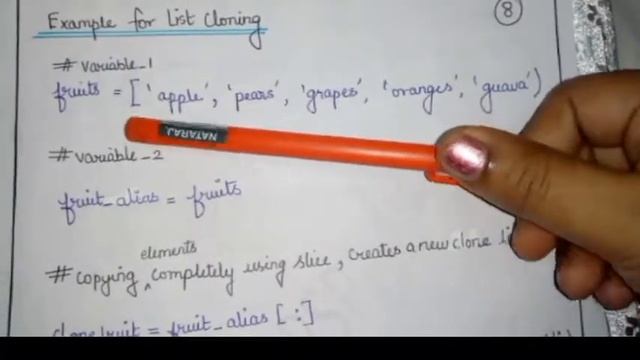 Example for List Cloning
8
# variable_1
fruits = ['apple', 'pears', 'grapes', 'oranges', 'guava')
NATARAJ
# variable_2
fruit_alias = fruits
elements
# copying ^ completely using slice, creates a new clone
clone fruit = fruit_alias [:]